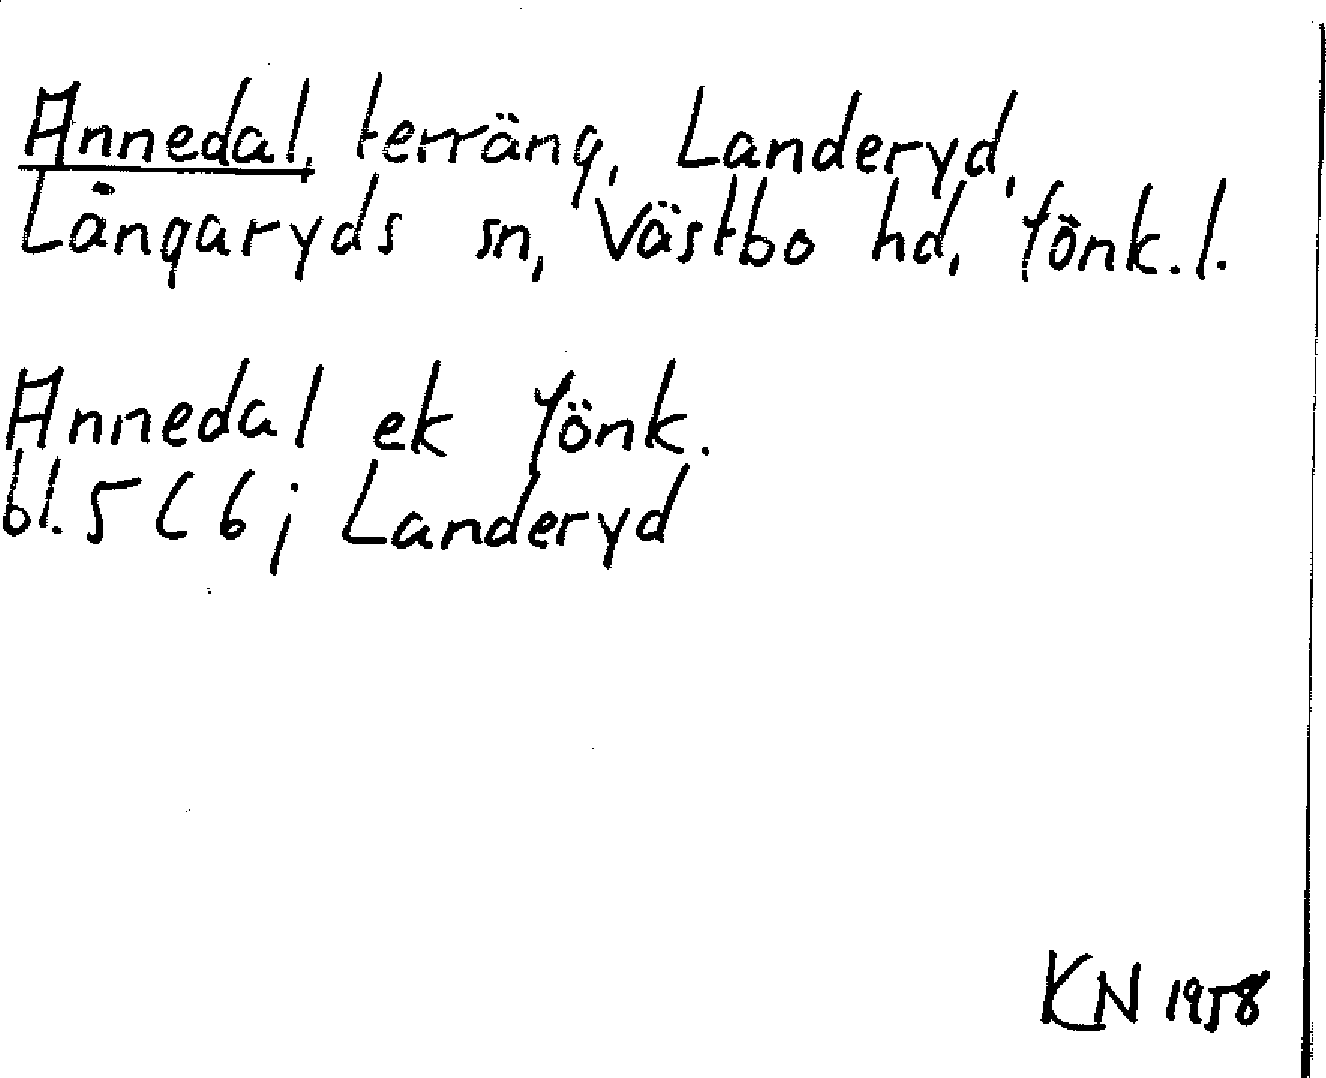 Annedal, terräng, Landeryd,
Långaryds sn, Västbo hd, Jönk.l.
Annedal ek Jönk.
bl. 5 C 6; Landeryd
KN 1958